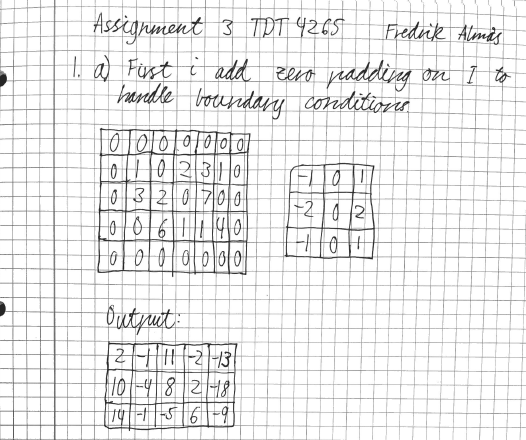 Assignment 3 TDT 4265 Fredrik Almås
1. a) First i add zero padding on I to
handle boundary conditions.
0 0 0 0 0 0 0
0 1 0 2 3 1 0
0 3 2 0 7 0 0
0 0 6 1 1 4 0
0 0 0 0 0 0 0
-1 0 1
-2 0 2
-1 0 1
Output:
2 -1 11 -2 -13
10 -4 8 2 -18
14 -1 -5 6 -9